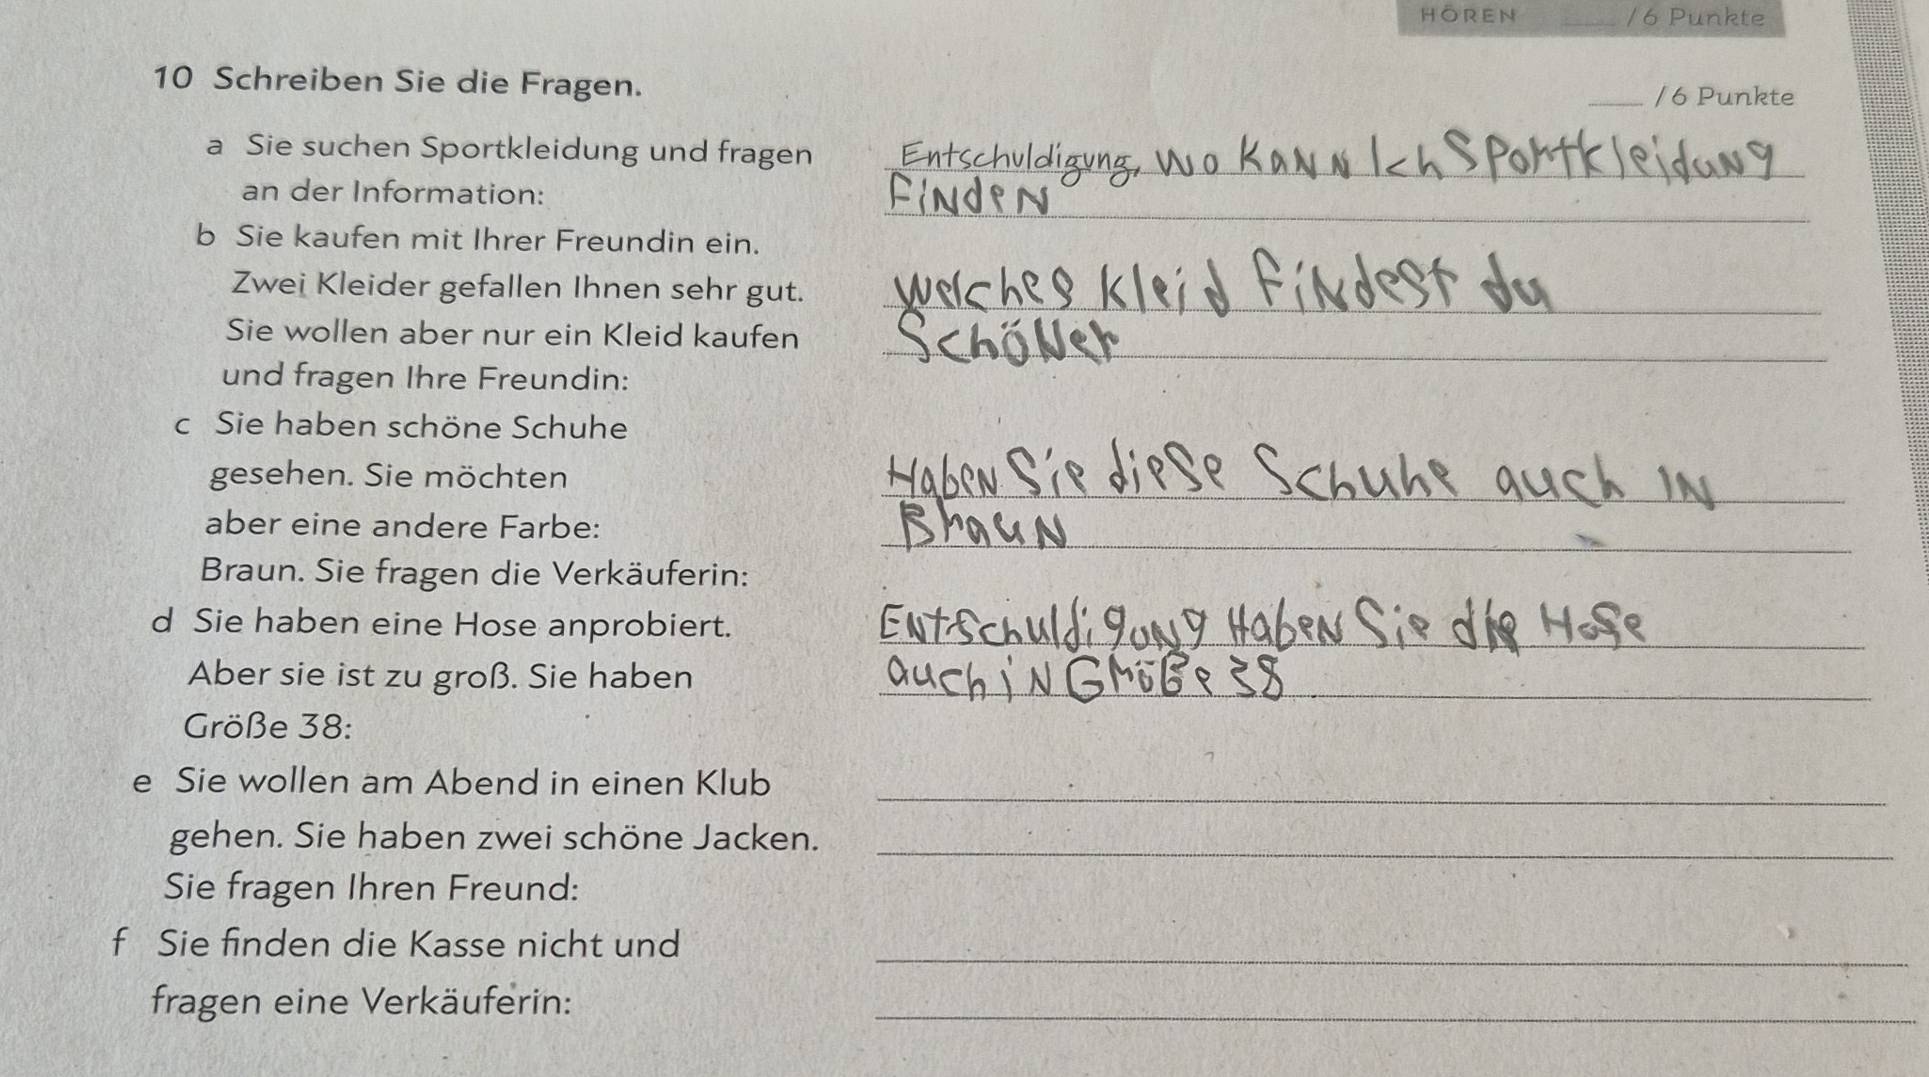 HÖREN ____ / 6 Punkte
10 Schreiben Sie die Fragen.
____ / 6 Punkte
a Sie suchen Sportkleidung und fragen
an der Information:
Entschuldigung, wo kann Ich Sportkleidung
Finden
b Sie kaufen mit Ihrer Freundin ein.
Zwei Kleider gefallen Ihnen sehr gut.
Sie wollen aber nur ein Kleid kaufen
und fragen Ihre Freundin:
welches kleid Findest du
Schöner
c Sie haben schöne Schuhe
gesehen. Sie möchten
aber eine andere Farbe:
Braun. Sie fragen die Verkäuferin:
Haben Sie diese Schuhe auch IN
Braun
d Sie haben eine Hose anprobiert.
Aber sie ist zu groß. Sie haben
Größe 38:
Entschuldigung Haben Sie die Hose
auch in Größe 38
e Sie wollen am Abend in einen Klub
gehen. Sie haben zwei schöne Jacken.
Sie fragen Ihren Freund:
f Sie finden die Kasse nicht und
fragen eine Verkäuferin: